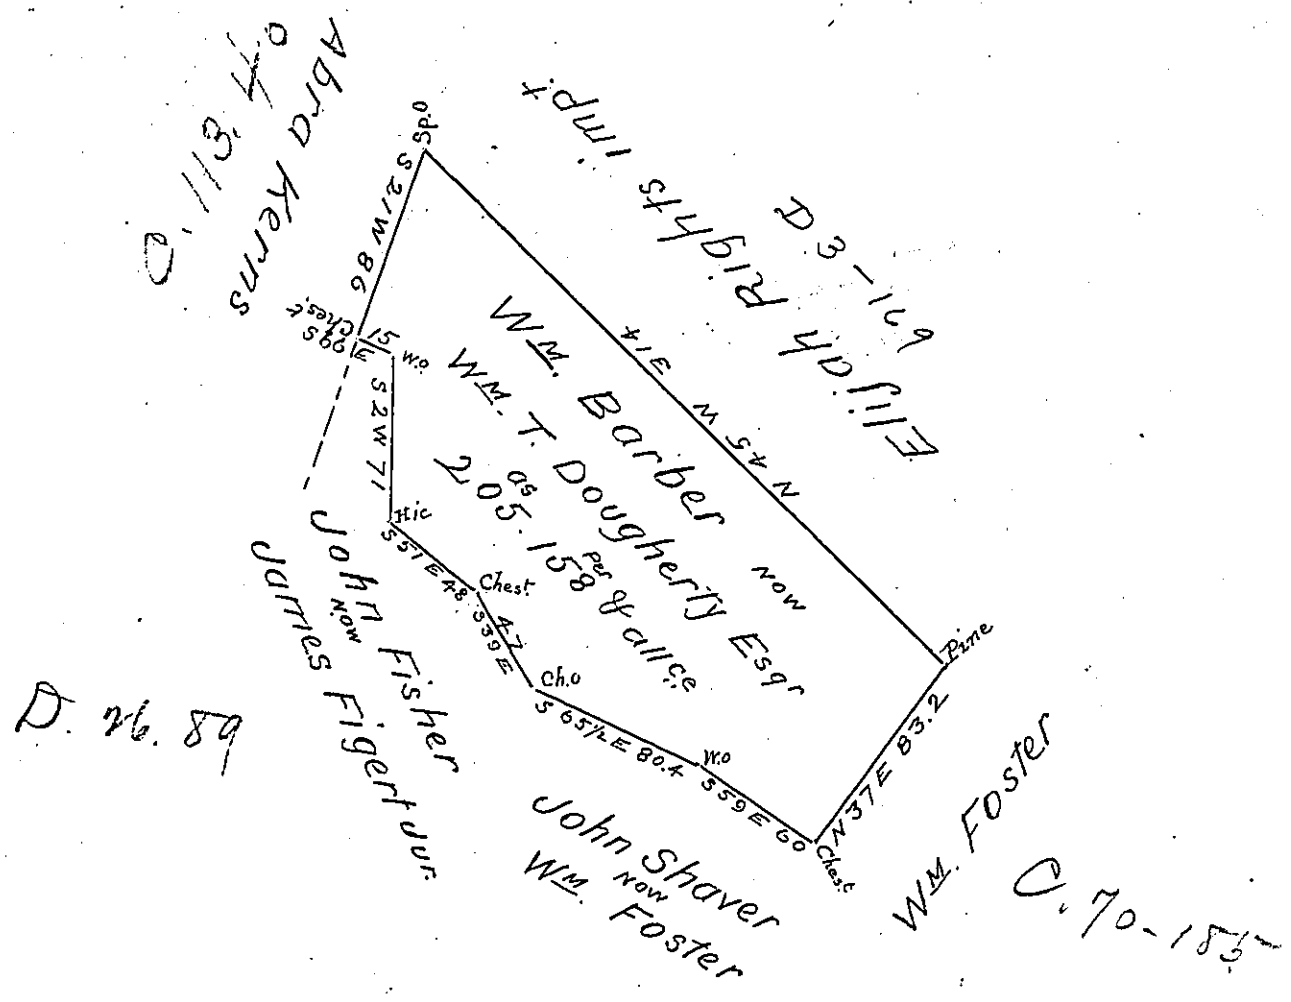 Abra Kerns
C. 113. 40
Elijah Rights impt
D 3 - 169
Sp.o
S 21 W 86
Chest
S 66 E
15
W.o
S 2 W 71
Hic
S 51 E 48
Chest
S 39 E
47
Ch.o
S 65½ E 80.4
W.o
S 59 E 60
Chest
N 37 E 83.2
Pine
N 45 W 314
Wm. Barber
now
Wm. T. Dougherty Esqr
as
205.158 per & allce
John Fisher
now
James Figert Jur.
D. 26. 89
John Shaver
now
Wm. Foster
Wm. Foster
C. 70-185